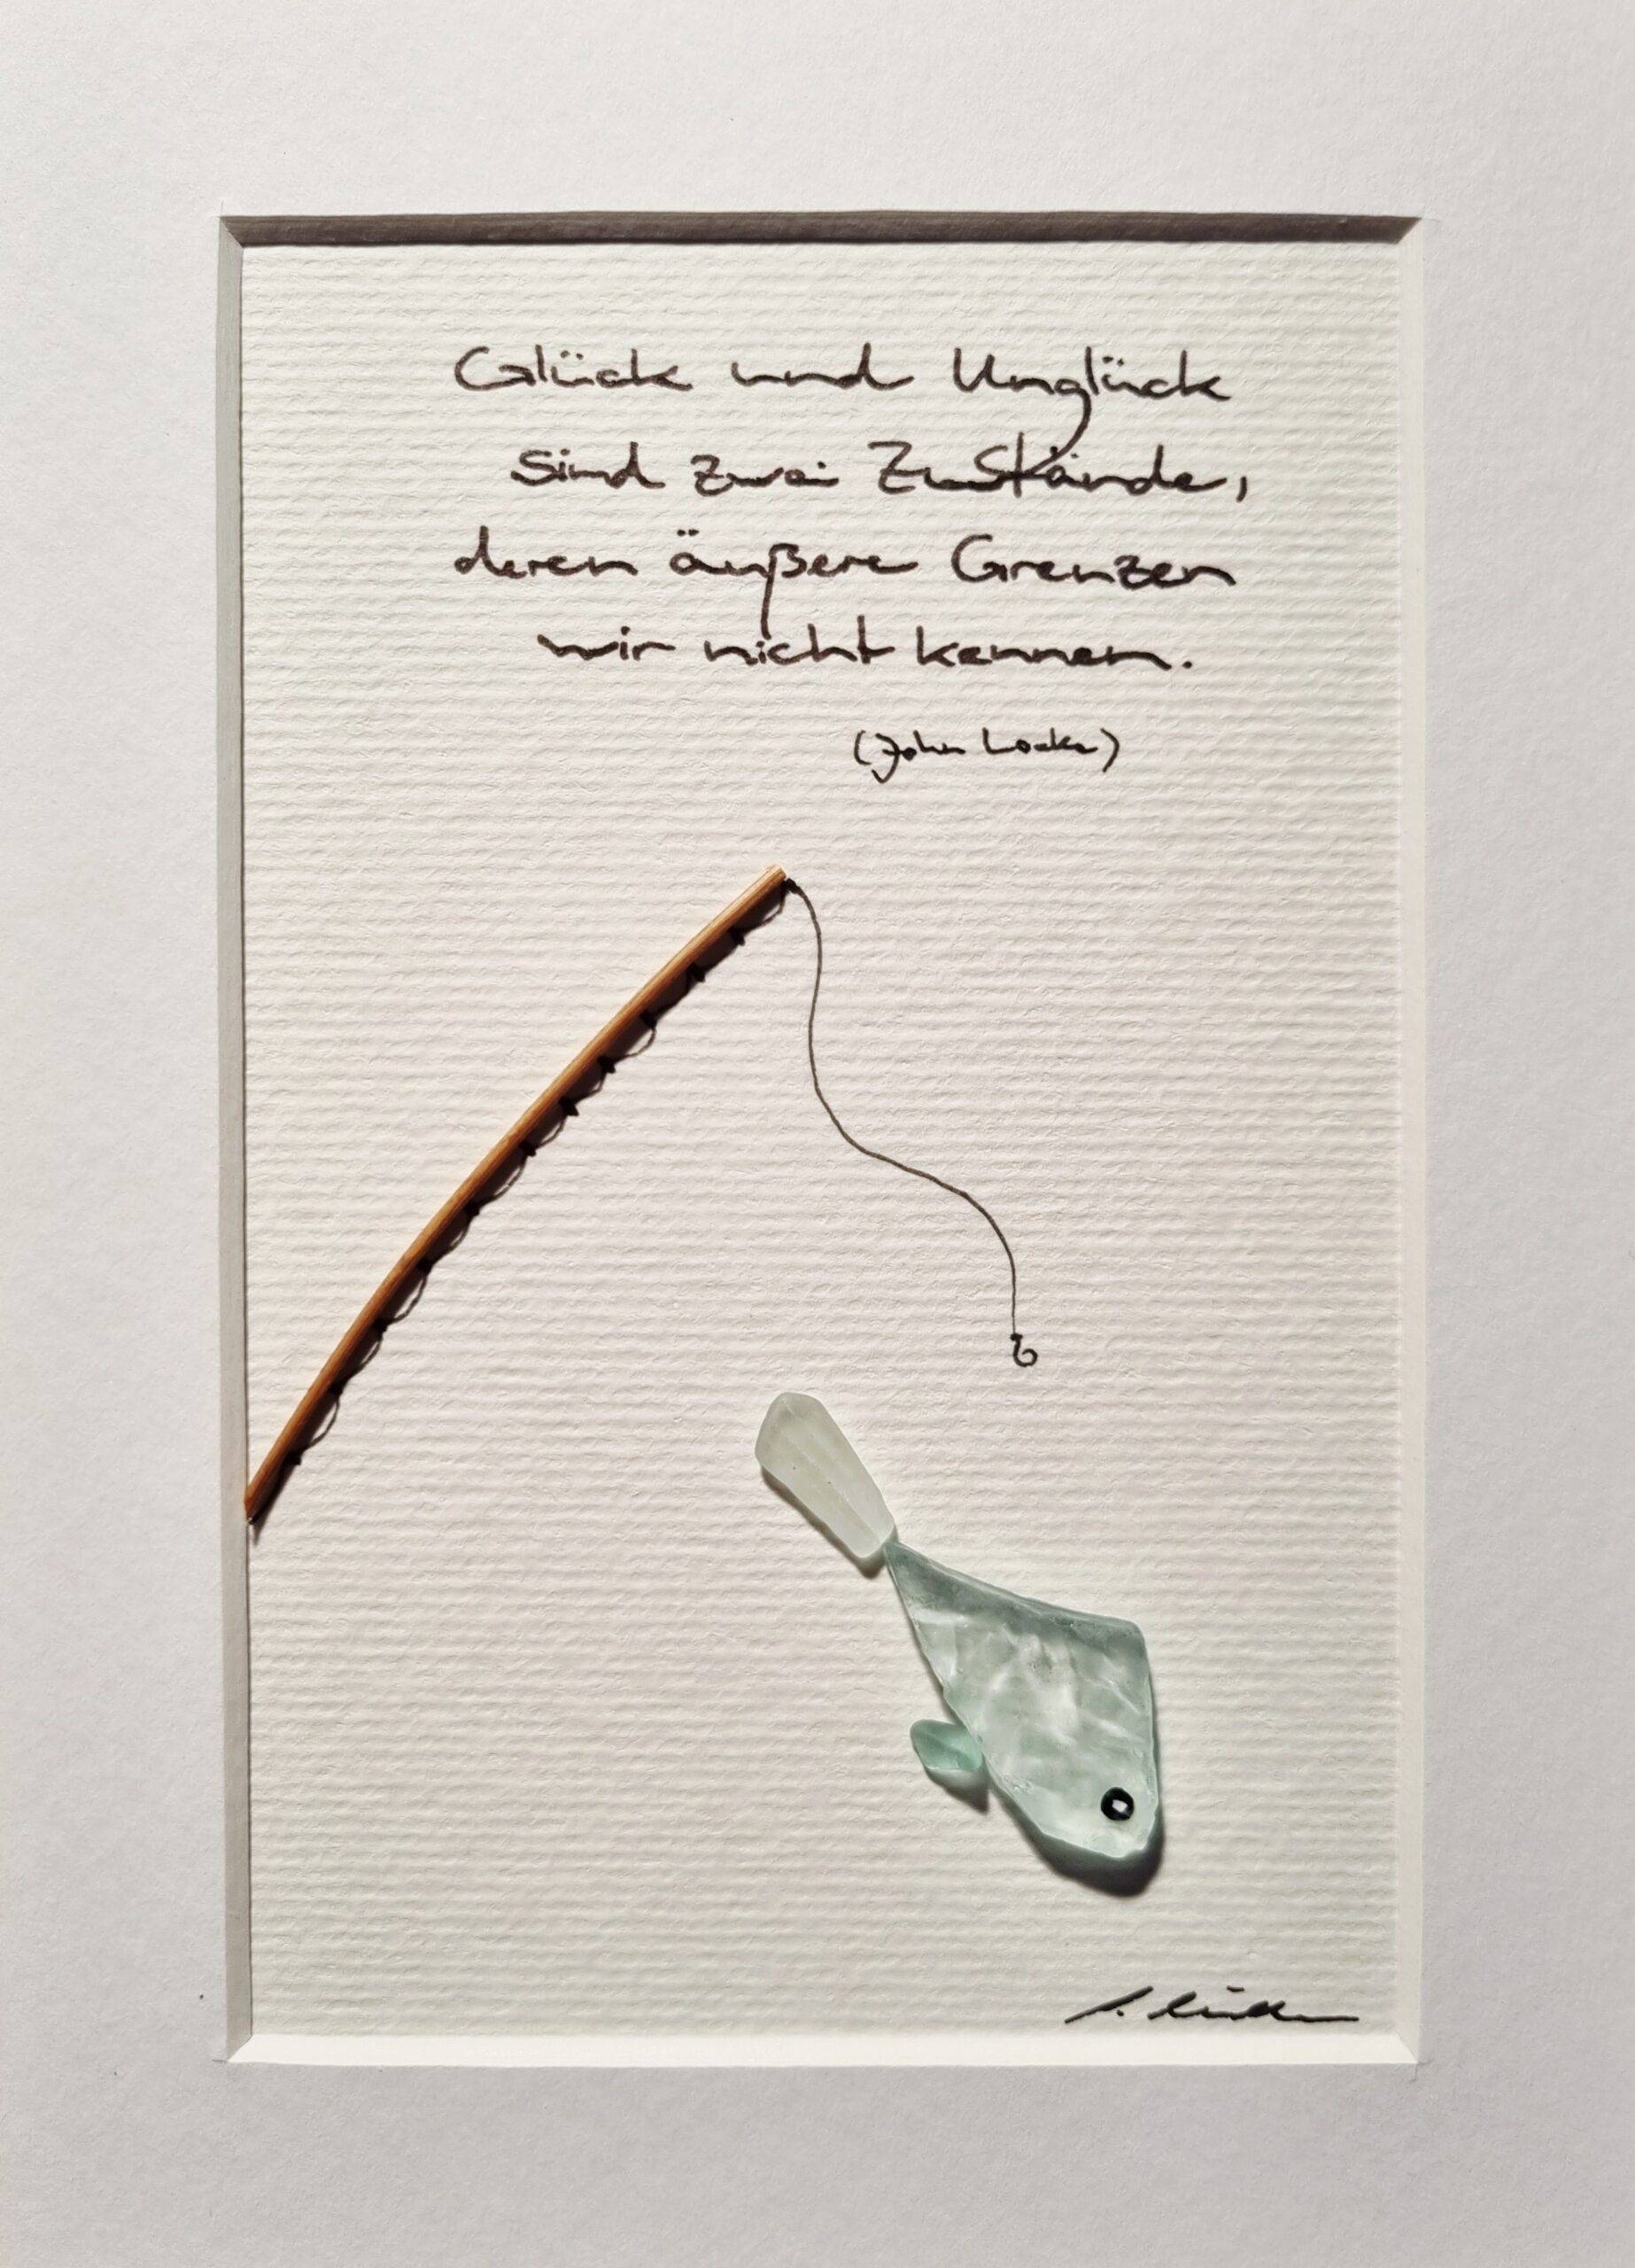 Glück und Unglück
sind zwei Zustände,
deren äußere Grenzen
wir nicht kennen.
(John Locke)